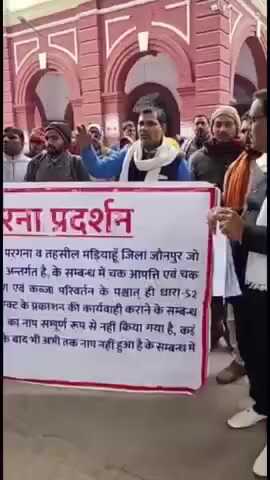 रना प्रदर्शन
परगना व तहसील मड़ियाहूँ जिला जौनपुर जो
अन्तर्गत है, के सम्बन्ध में चक आपत्ति एवं चक
एवं कब्जा परिवर्तन के पश्चात् ही धारा-52
के प्रकाशन की कार्यवाही कराने के सम्बन्ध
का नाप सम्पूर्ण रूप से नहीं किया गया है, कई
के बाद भी अभी तक नाप नहीं हुआ है के सम्बन्ध में